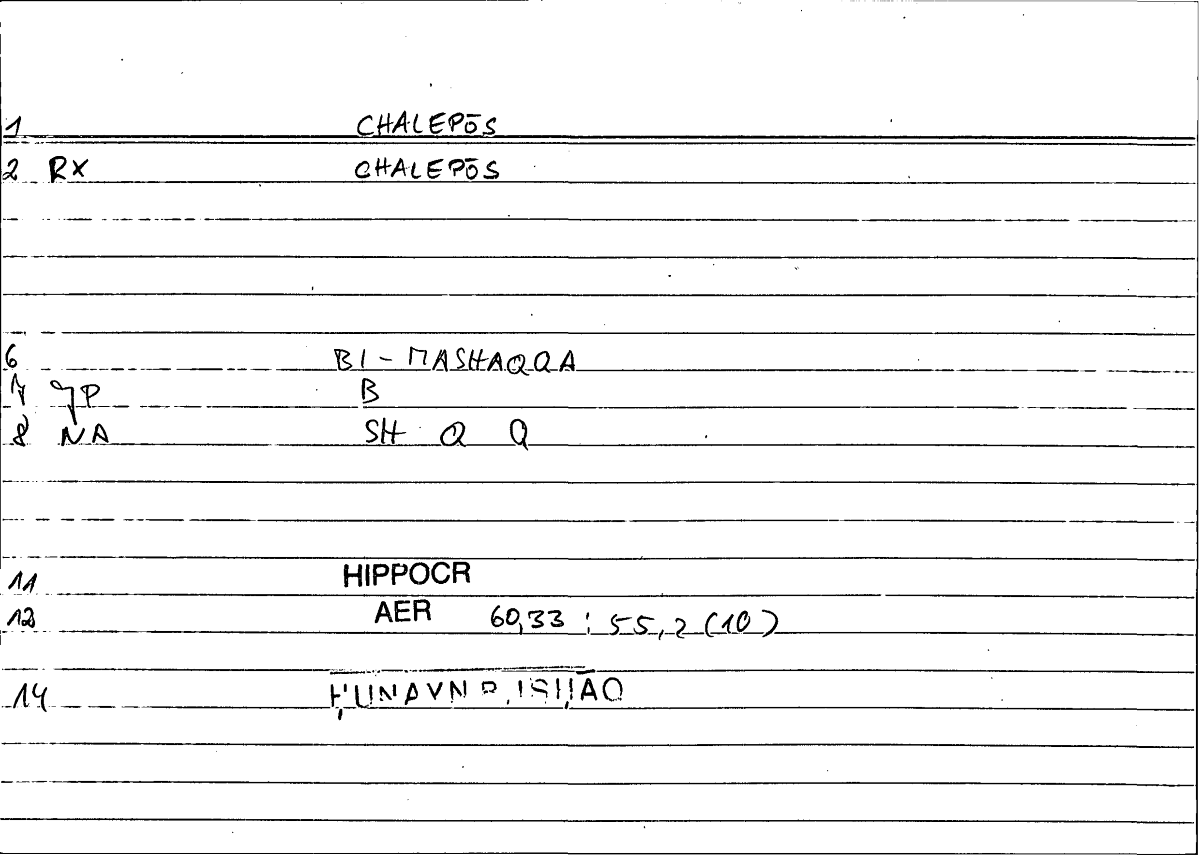 1 CHALEPŌS
2 RX CHALEPŌS
6 BI-MASHAQQA
7 JP B
8 NA SH Q Q
11 HIPPOCR
12 AER 60,33 : 55,2 (10)
14 ḤUNAYN B. ISḤĀQ